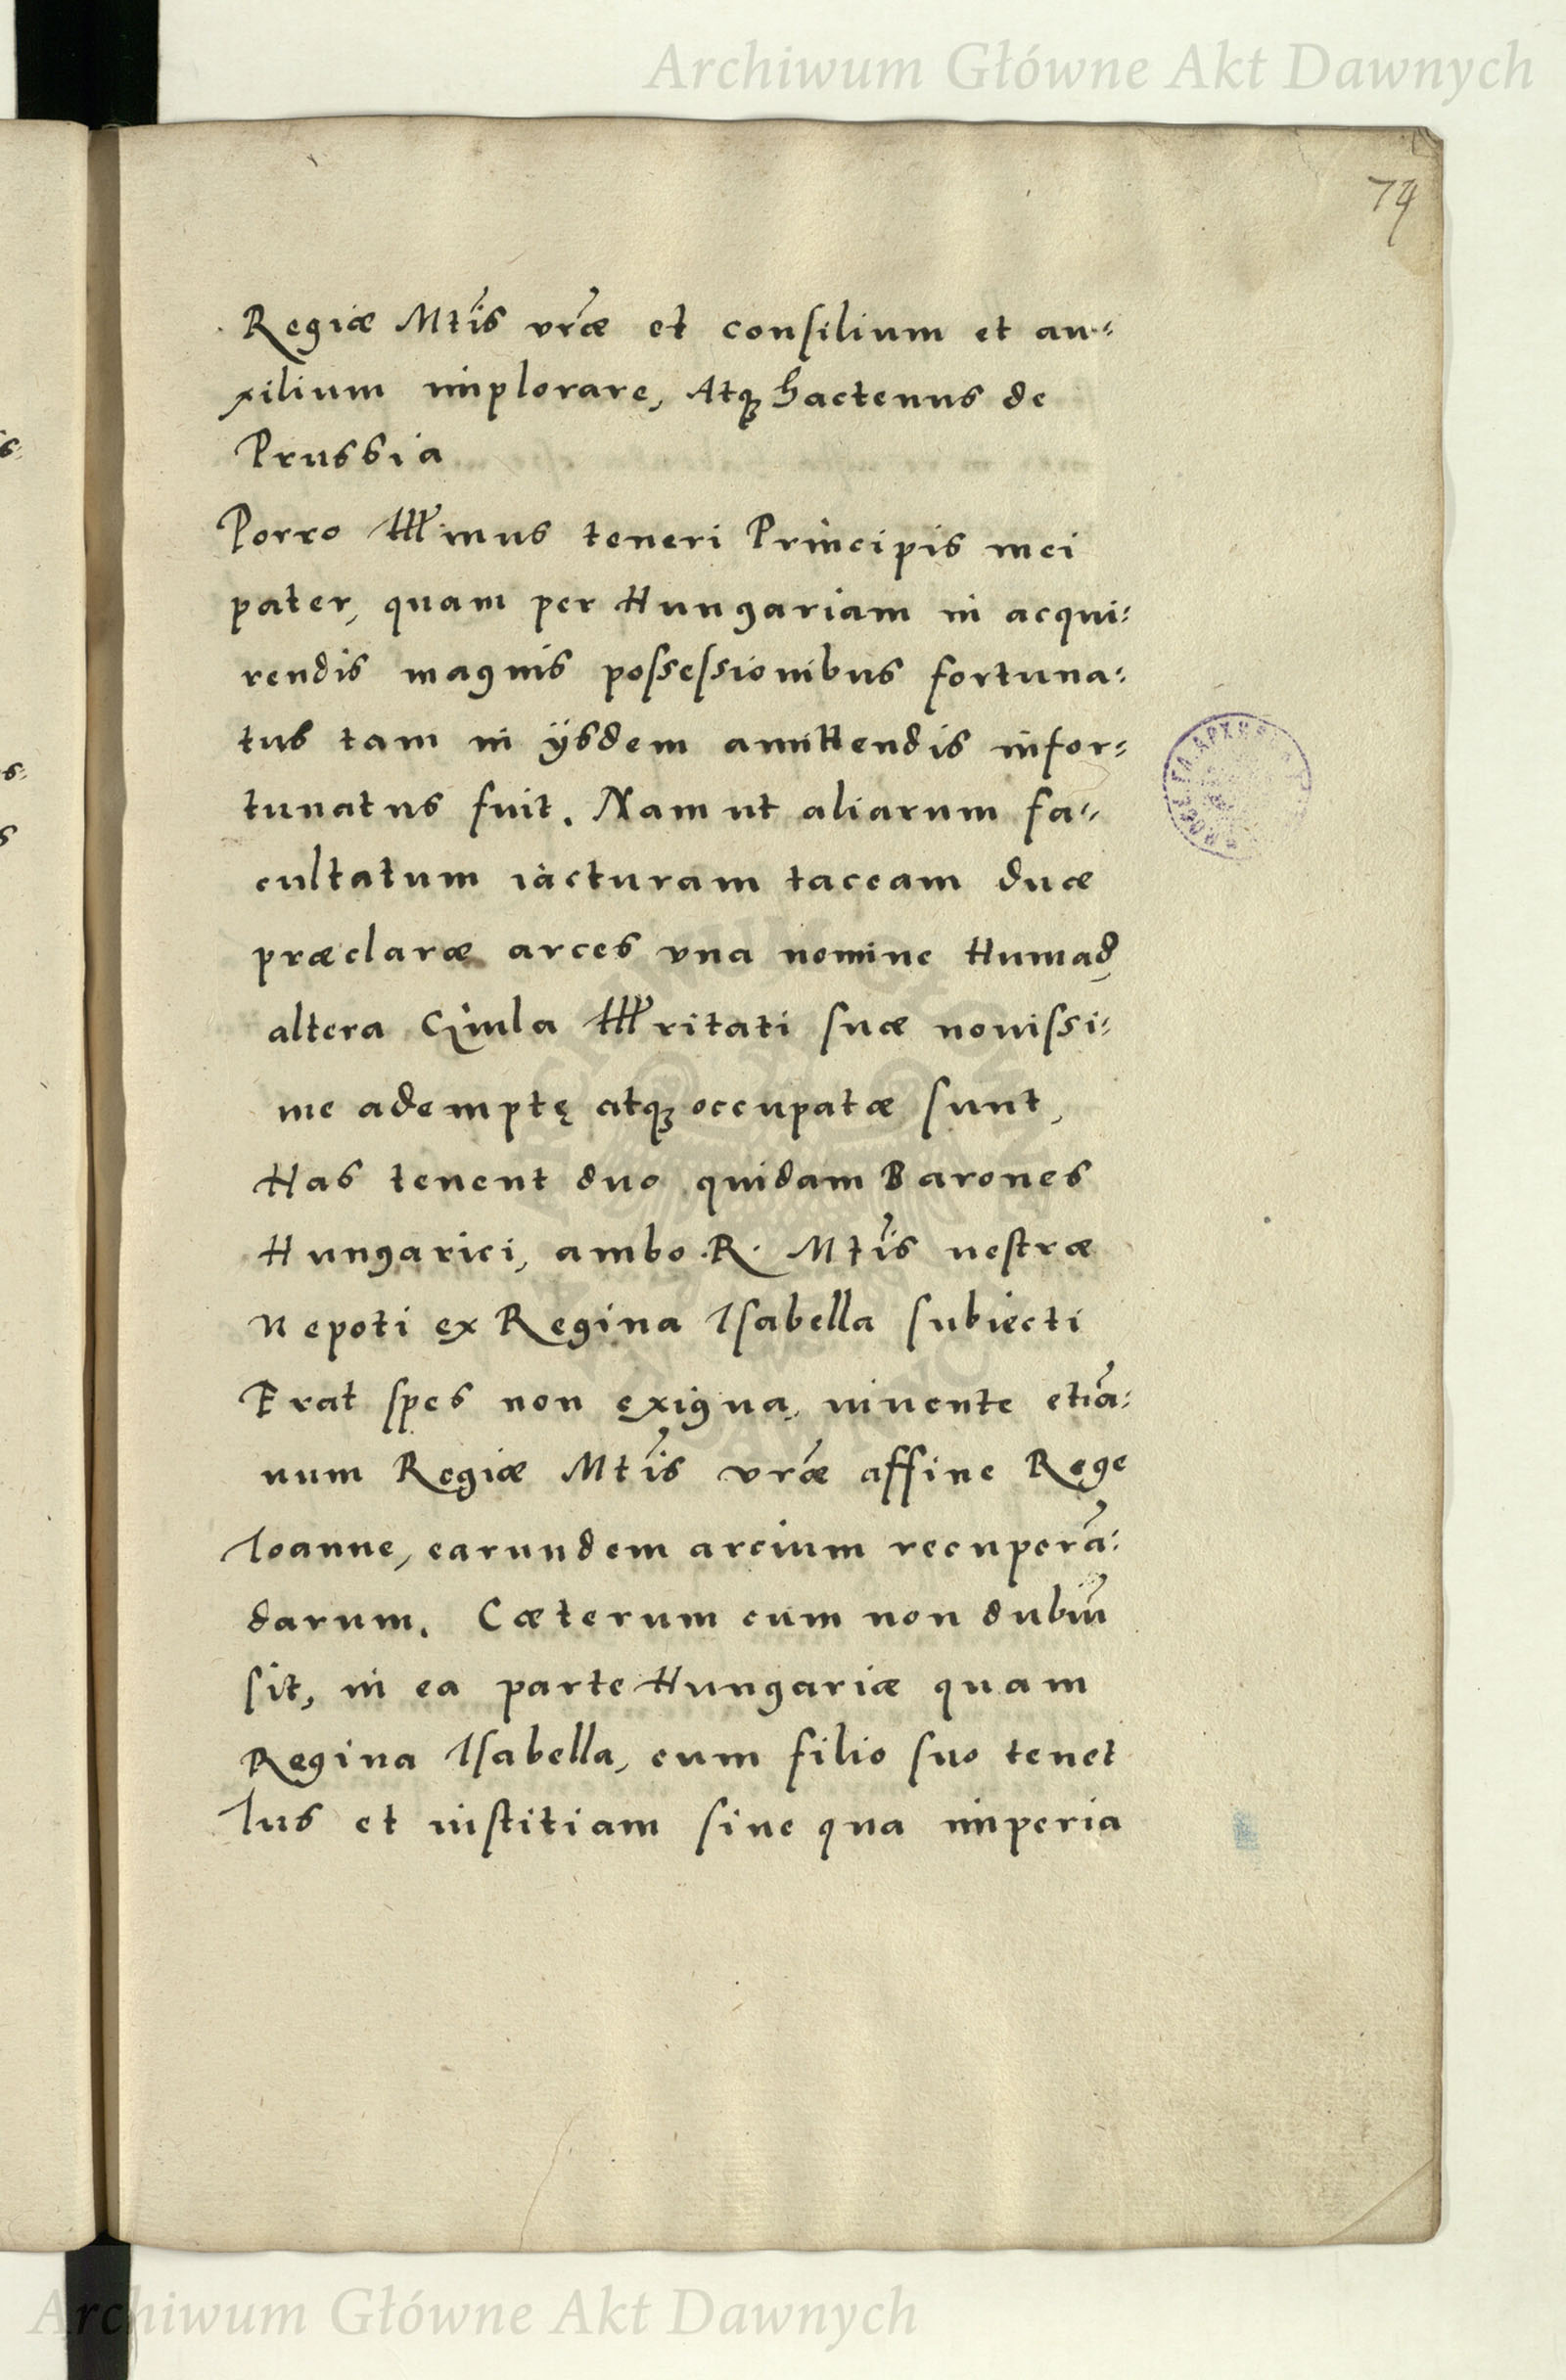 Archiwum Główne Akt Dawnych
74
Regiæ Mtis vræ et consilium et au=
xilium implorare, Atq hactenus de
Prussia
Porro Illmus teneri Principis mei
pater, quam per Hungariam in acqui=
rendis magnis possessionibus fortuna=
tus tam in ijsdem amittendis infor=
tunatus fuit. Nam ut aliarum fa=
cultatum iacturam taceam duæ
præclaræ arces vna nomine Huniad
altera Giula Illritati suæ nouissi=
me ademptę atq occupatæ sunt,
Has tenent duo quidam Barones
Hungarici, ambo R. Mtis uestræ
Nepoti ex Regina Isabella subiecti
Erat spes non exigua, viuente etiã=
num Regiæ Mtis vræ affine Rege
Ioanne, earundem arcium recuperã=
darum. Cæterum cum non dubiũ
sit, in ea parte Hungariæ quam
Regina Isabella, cum filio suo tenet
Ius et iustitiam sine qua imperia
Archiwum Główne Akt Dawnych